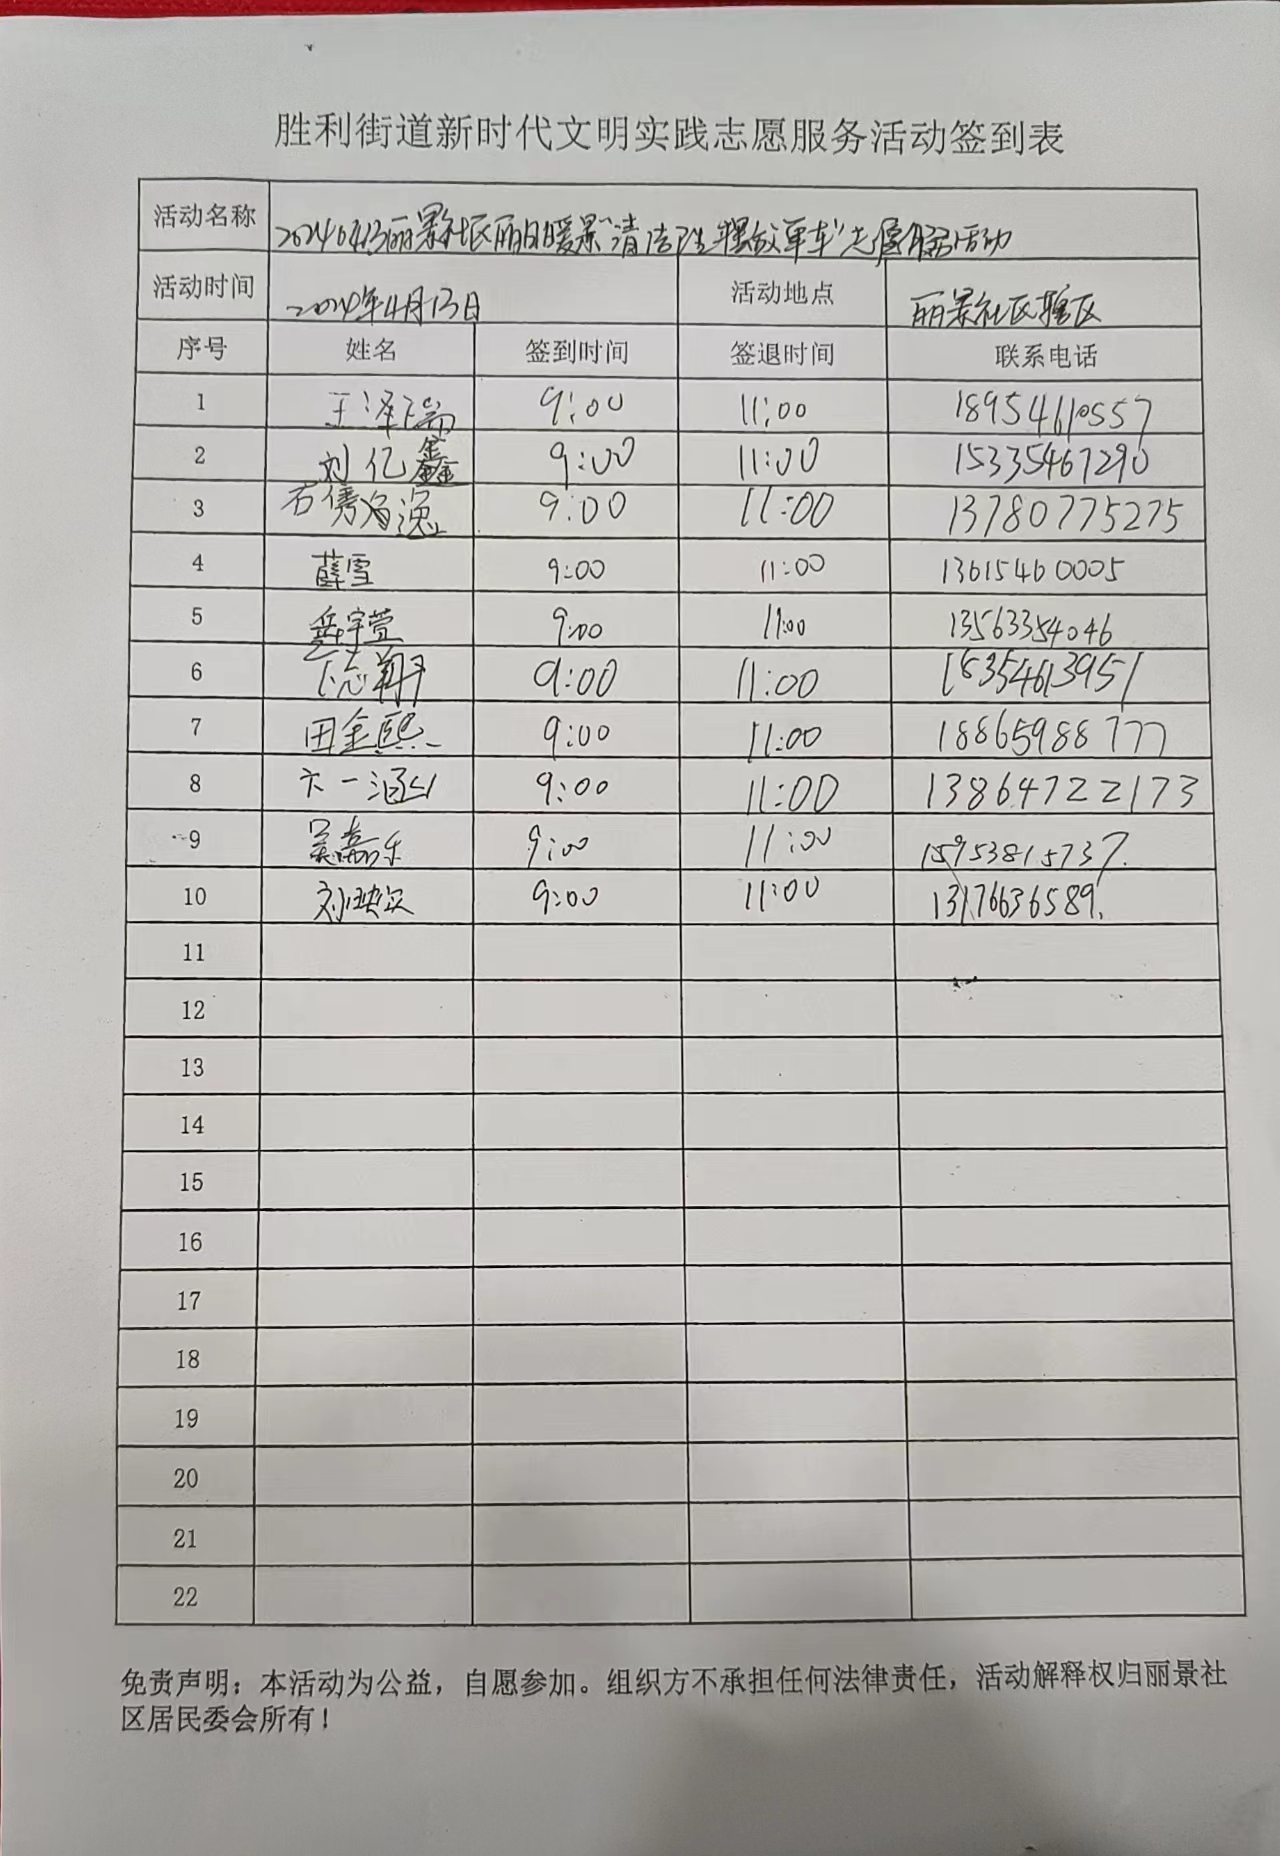 胜利街道新时代文明实践志愿服务活动签到表
活动名称 20240413丽景社区丽日暖景"清洁卫生摆放单车"志愿服务活动
活动时间 2024年4月13日 活动地点 丽景社区辖区
序号 姓名 签到时间 签退时间 联系电话
1 王泽瑞 9:00 11:00 18954610557
2 刘亿鑫 9:00 11:00 15335467290
3 9:00 11:00 13780775275
4 薛雪 9:00 11:00 13615460005
5 岳宇萱 9:00 11:00 13563354046
6 志翔 9:00 11:00 18354613951
7 田金熙 9:00 11:00 18865988777
8 一涵 9:00 11:00 13864722173
9 吴嘉乐 9:00 11:00 15953815737.
10 刘映汝 9:00 11:00 13176636589.
11
12
13
14
15
16
17
18
19
20
21
22
免责声明：本活动为公益，自愿参加。组织方不承担任何法律责任，活动解释权归丽景社
区居民委会所有！